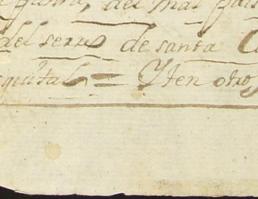 del mal
del serro de santa
quital = Yten otro